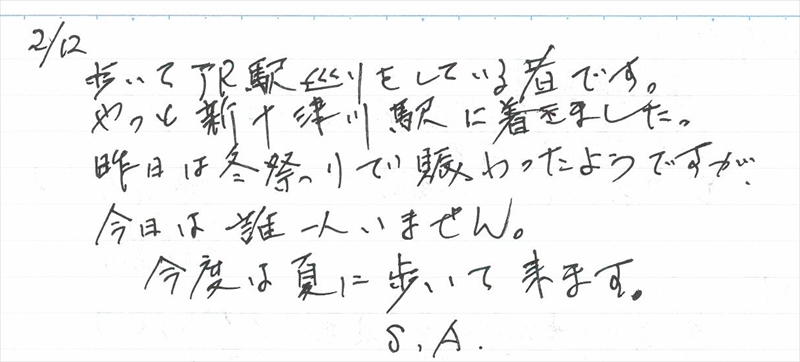 2/12
歩いてJR駅巡りをしている者です。
やっと新十津川駅に着きました。
昨日は冬祭りで賑わったようですが、
今日は誰一人いません。
今度は夏に歩いて来ます。
S.A.